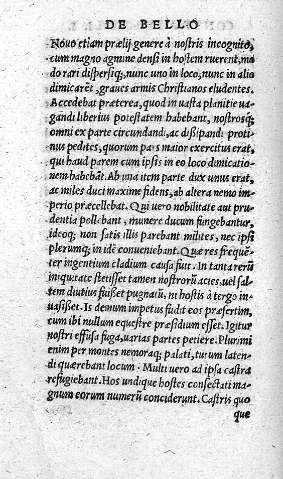 DE BELLO
Nouo etiam prælij genere à nostris incognito,
cum magno agmine densi in hostem ruerent, mo
do rari dispersiq́;, nunc uno in loco, nunc in alio
dimicarēt, graues armis Christianos eludentes.
Accedebat præterea, quod in uasta planitie ua-
gandi liberius potestatem habebant, nostrosq́;
omni ex parte circundandi, ac dissipandi proti-
nus pedites, quorum pars maior exercitus erat,
qui haud parem cum ipsis in eo loco dimicatio-
nem habebāt. Ab una item parte dux unus erat,
ac miles duci maxime fidens, ab altera nemo im-
perio præcellebat. Qui uero nobilitate aut pru
dentia pollebant, munere ducum fungebantur,
ideoq́; non satis illis parebant milites, nec ipsi
plerumq́; in idē conueniebant. Quæ res frequē-
ter ingentium cladium causa fuit. In tanta rerū
iniquitate stetisset tamen nostrorū acies, uel sal-
tem diutius fuisset pugnatū, ni hostis à tergo in-
uasisset. Is demum impetus fudit eos præsertim,
cum ibi nullum equestre præsidium esset. Igitur
nostri effusa fuga, uarias partes petiere. Plurimi
enim per montes nemoraq́; palati, tutum laten-
di quærebant locum. Multi uero ad ipsa castra
refugiebant. Hos undique hostes consectati ma-
gnum eorum numerū conciderunt. Castris quo
que